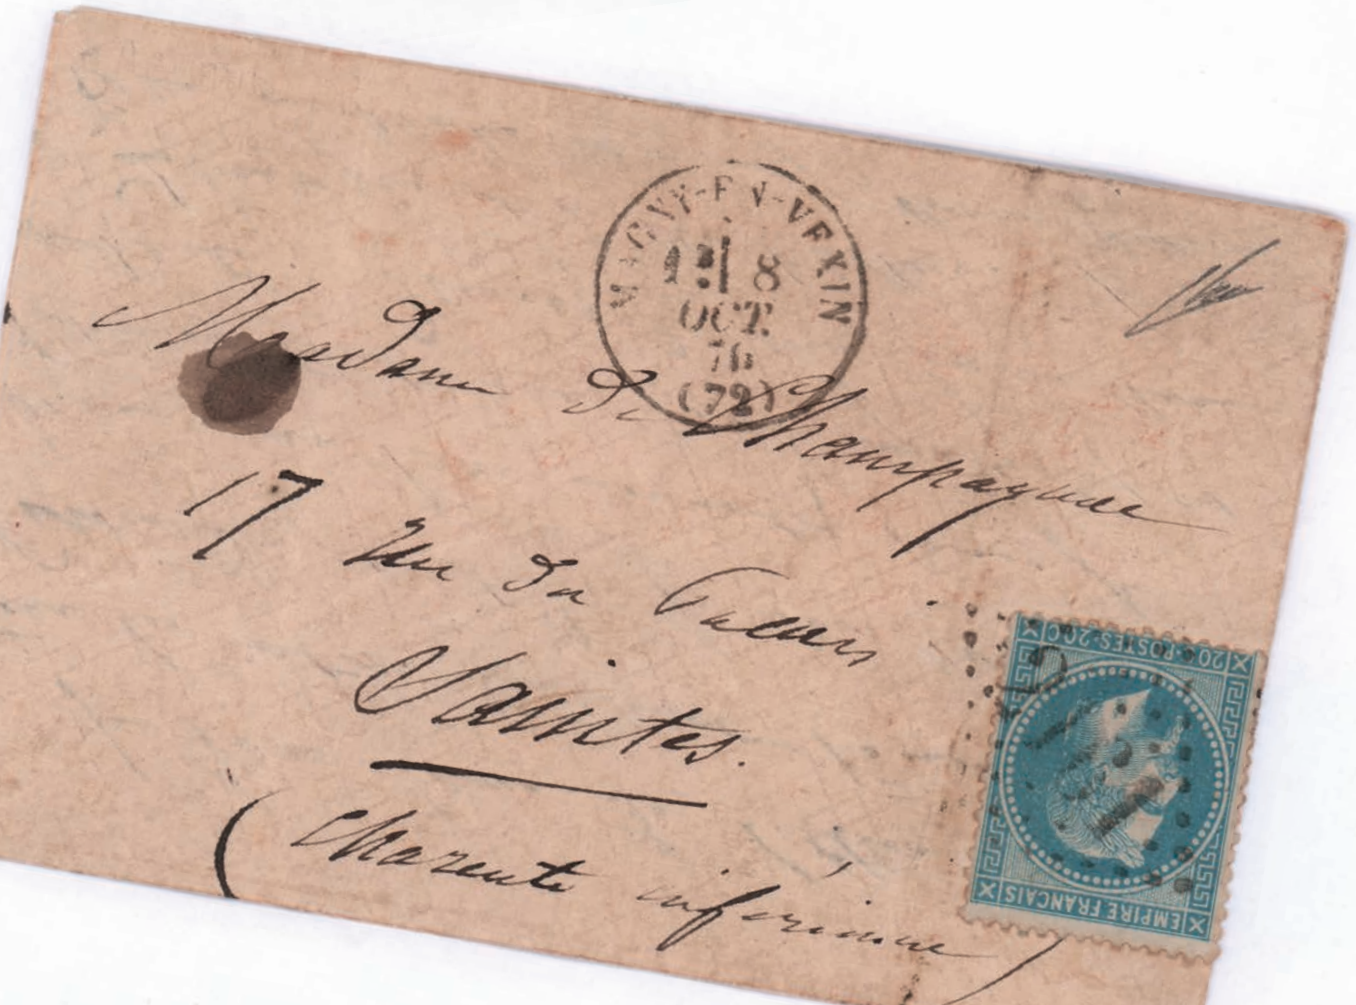 MAGNY-EN-VEXIN
1E 8
OCT.
70
(72)
Madame de Champagnac
17 Rue du
Saintes.
(Charente inférieure)
20c POSTES 20c
EMPIRE FRANÇAIS